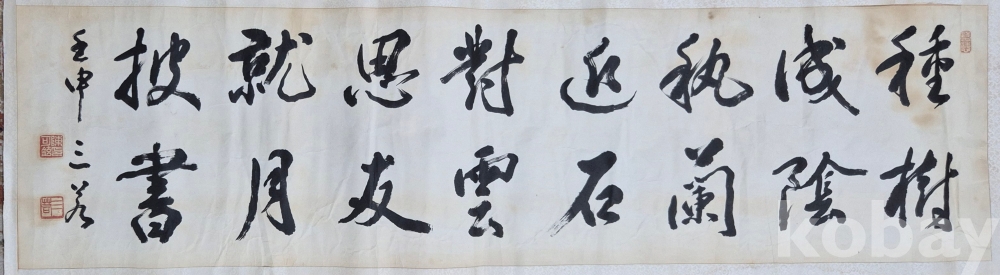 種樹
成陰
秇蘭
近石
對雲
思友
就月
披書
壬申 三
kobay